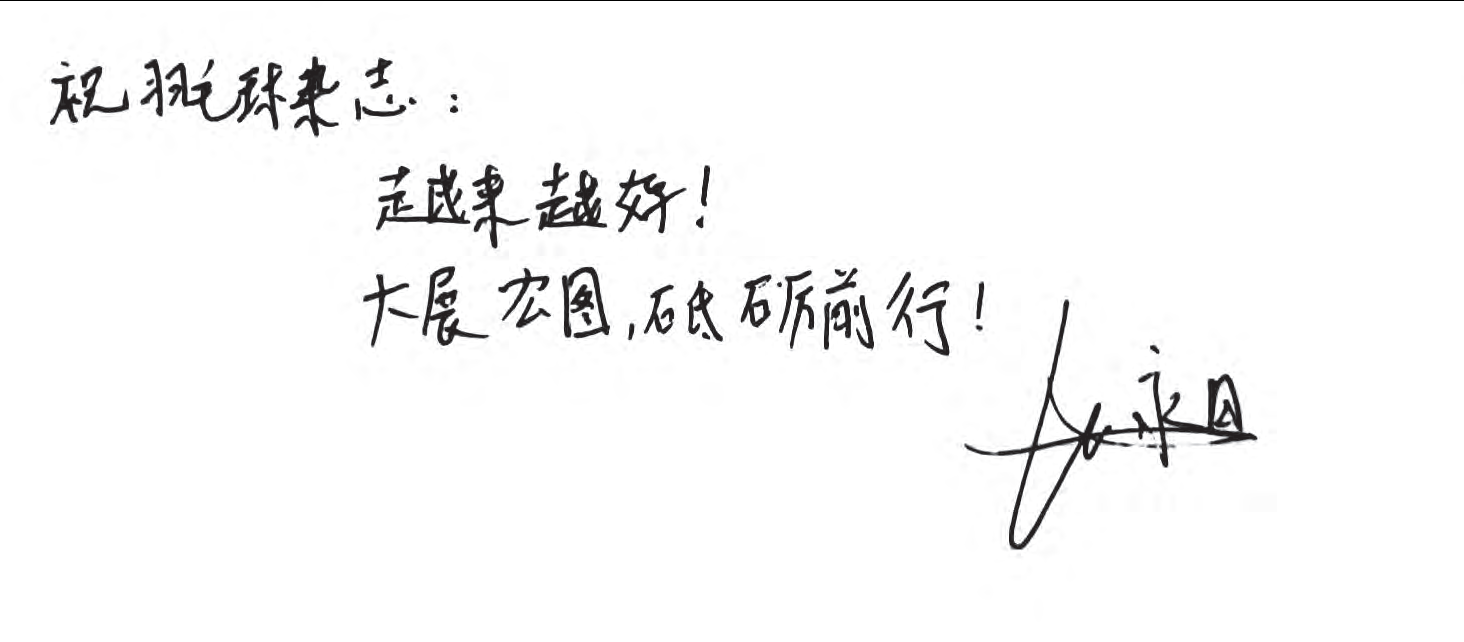 祝羽毛球杂志：
越来越好！
大展宏图，砥砺前行！